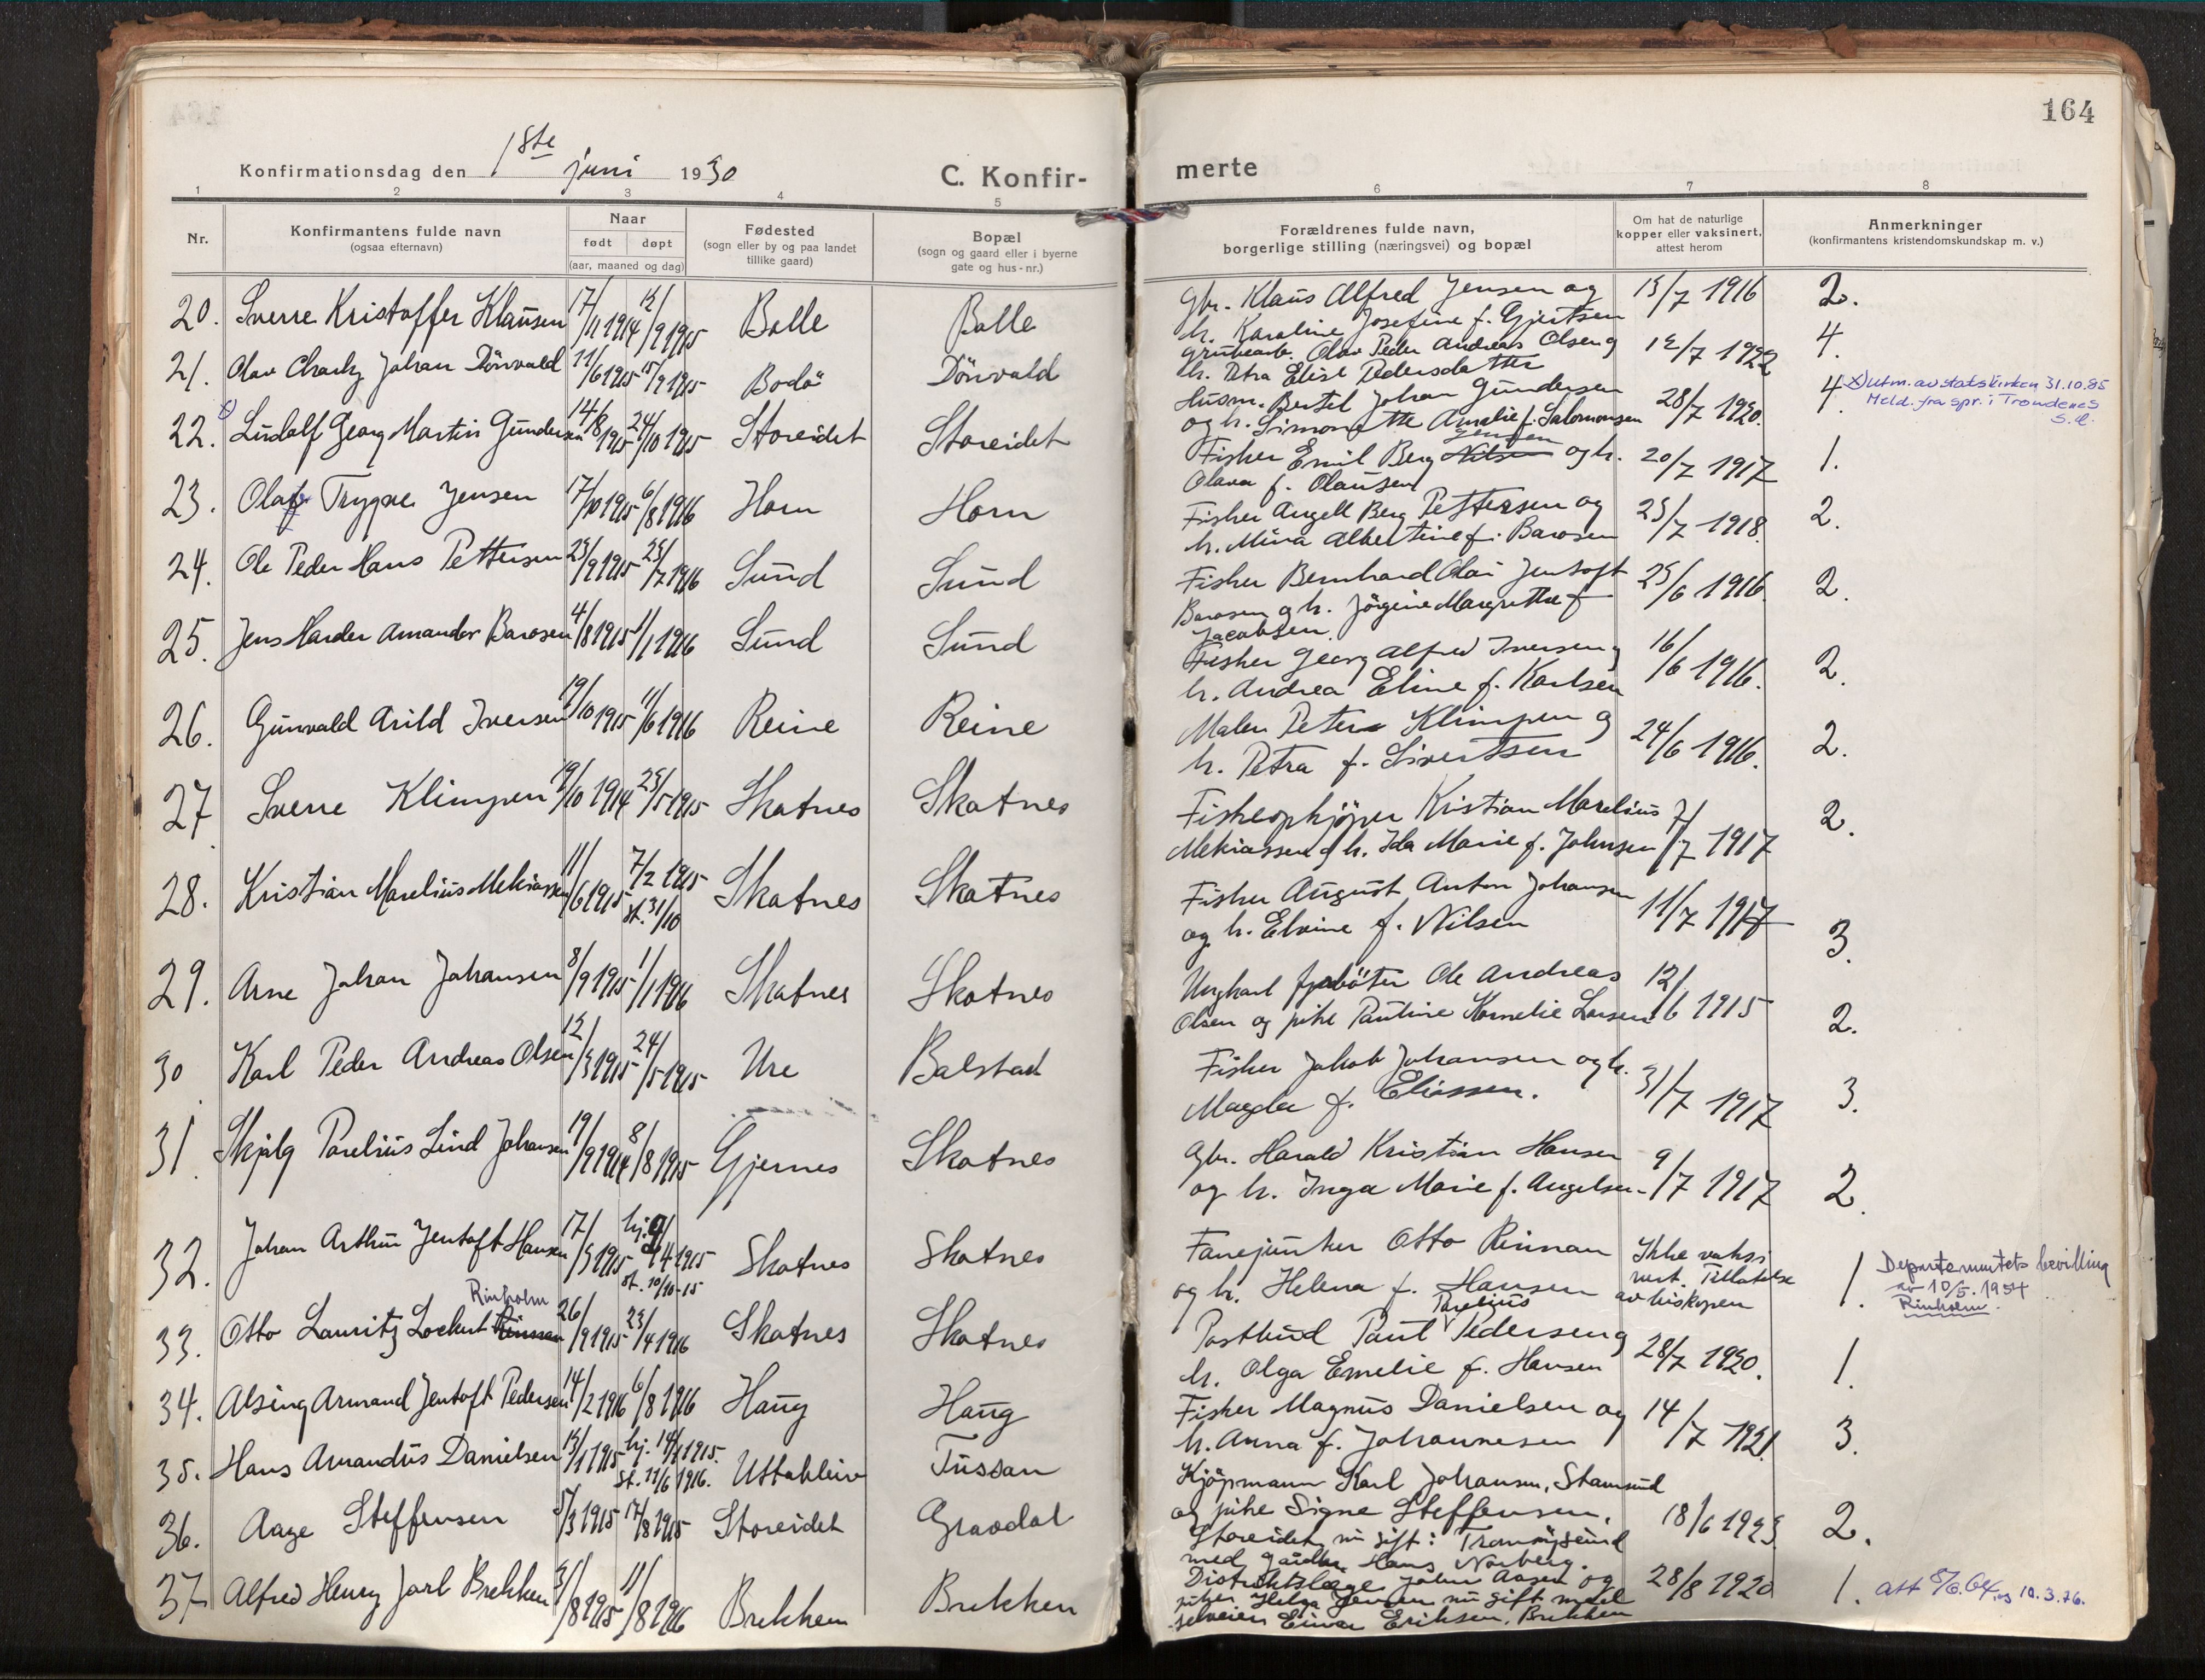 164
Konfirmationsdag den 1ste juni 1930
C. Konfir-
merte
1 2 3 4 5 6 7 8
Nr.
Konfirmantens fulde navn
(ogsaa efternavn)
Naar
født døpt
(aar, maaned og dag)
Fødested
(sogn eller by og paa landet
tillike gaard)
Bopæl
(sogn og gaard eller i byerne
gate og hus-nr.)
Forældrenes fulde navn,
borgerlige stilling (næringsvei) og bopæl
Om hat de naturlige
kopper eller vaksinert,
attest herom
Anmerkninger
(konfirmantens kristendomskundskap m. v.)
20. Sverre Kristoffer Klausen 17/11 1914 12/9 1915 Bolle Bolle
Gbr. Klaus Alfred Jensen og 13/7 1916 2.
h. Karoline Josefine f. Gjertsen
21. Olav Charly Johan Dönvald 11/6 1915 15/9 1915 Bodö Dönvald
Grubearb. Olav Peder Andreas Olsen og 12/7 1922 4.
h. Petra Elise Pedersdatter
22. x) Ludolf Georg Martin Gundersen 14/8 1915 24/10 1915 Storeidet Storeidet
Husm. Bertel Johan Gundersen 28/7 1920. 4.
og h. Simonette Amalie f. Salomonsen
x) Utm. av statskirken 31.10.85
Meld. fra spr. i Trondenes
23. Olaf Trygve Jensen 17/10 1915 6/8 1916 Horn Horn
Fisker Emil Berg Nilsen Jensen og h. 20/7 1917 1.
Olava f. Olausen
24. Ole Peder Hans Pettersen 23/9 1915 23/7 1916 Sund Sund
Fisker Angell Berg Pettersen og 23/7 1918. 2.
h. Mina Albertine f. Barosen
25. Jens Harder Amandor Barosen 4/8 1915 1/1 1916 Sund Sund
Fisker Bernhard Olai Jentoft 25/6 1916. 2.
Barosen og h. Jörgine Margrethe f.
Jacobsen.
26. Gunvald Arild Iversen 19/10 1915 11/6 1916 Reine Reine
Fisker Georg Alfred Iversen og 16/6 1916. 2.
h. Andrea Eline f. Karlsen
27 Sverre Klimpen 19/10 1914 25/5 1915 Skotnes Skotnes
Maler Peter Klimpen og 24/6 1916. 2.
h. Petra f. Sivertsen
28. Kristian Marelius Mekiassen 11/6 1915 7/2 1915 st. 31/10 Skatnes Skatnes
Fiskeopkjöper Kristian Marelius 7/7 1917 2.
Mekiassen og h. Ida Marie f. Johnsen
29. Arne Johan Johansen 8/9 1915 1/1 1916 Skatnes Skotnes
Fisker August Anton Johansen 11/7 1917 3.
og h. Elvine f. Nilsen
30 Karl Peder Andreas Olsen 12/3 1915 24/5 1915 Ure Balstad
Ungkarl fyrböter Ole Andreas 12/6 1915 2.
Olsen og pike Pauline Kornelie Larsen
31. Skjalg Parelius Lind Johansen 19/9 1914 8/8 1915 Gjernes Skotnes
Fisker Jakob Johansen og h. 31/7 1917 3.
Magda f. Eliassen.
32. Johan Arthur Jentoft Hansen 17/3 1915 hj. 9/4 1915 st. 10/10-15 Skotnes Skotnes
Gbr. Harald Kristian Hansen 9/7 1917 2
og h. Inga Marie f. Angelsen
33. Otto Lauritz Lockert Rinnan Rinholm 26/9 1915 23/4 1916 Skotnes Skotnes
Fanejunker Otto Rinnan Ikke vaksi- 1.
og h. Helena f. Hansen nert. Tillatelse av biskopen
Departementets bevilling
av 10/5. 1954
Rinholm.
34. Alsing Armand Jentoft Pedersen 14/2 1916 6/8 1916 Haug Haug
Postbud Paul Parelius Pedersen og 28/7 1930. 1.
h. Olga Emelie f. Hansen
35. Hans Amandus Danielsen 13/1 1915 hj. 14/1 1915. st. 11/6 1916. Uttakleiv Tussan
Fisker Magnus Danielsen og 14/7 1921 3.
h. Anna f. Johannesen
36. Aage Steffensen 5/3 1915 17/8 1915 Storeidet Gravdal
Kjöpmann Karl Johansen, Stamsund
og pike Signe Steffensen, 18/6 1923 2.
Storeidet, nu gift i Tromöysund
med gaardbr. Hans Norberg.
37 Alfred Henry Jarl Brekken 3/8 1915 11/8 1916 Brekken Brekken
Distriktslæge Johan Aasen og 28/8 1920 1.
pike Helga Jensen nu gift med
selveier Einar Eriksen, Brekken
att 8/6.64, og 10.3.76.